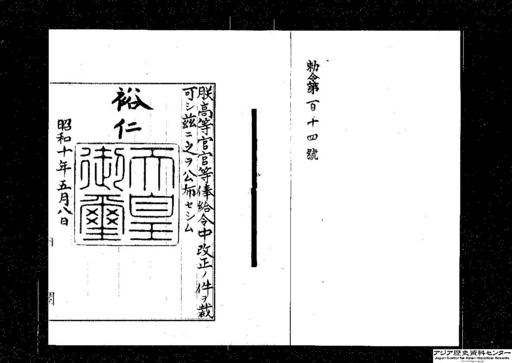 勅令第百十四號
朕高等官官等俸給令中改正ノ件ヲ裁
可シ茲ニ之ヲ公布セシム
裕仁
天皇
御璽
昭和十年五月八日
アジア歴史資料センター
Japan Center for Asian Historical Records